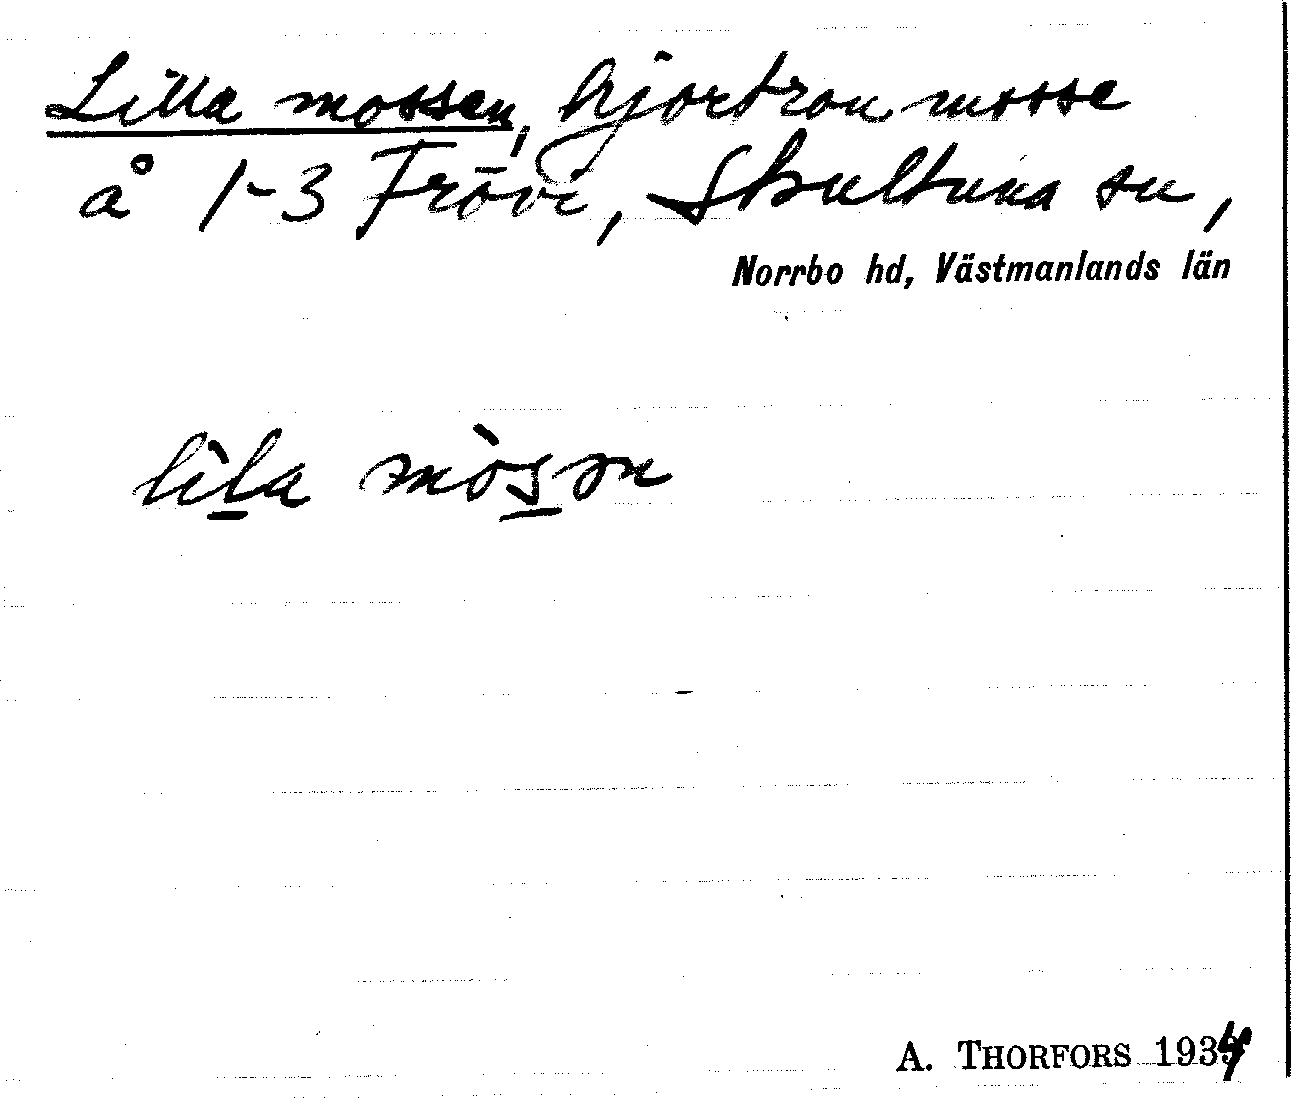 Lilla mossen, hjortronmosse
å 1-3 Frövi, Skultuna sn,
Norrbo hd, Västmanlands län
lìla mòsən
A. THORFORS 1934